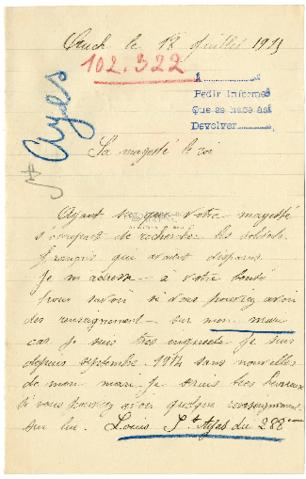 Auch le 18 Juillet 1915
102.322
A
Pedir Informes
Que se hace así
Devolver
St Ayes
Sa magesté le roi
Ayant su que Votre magesté
s'occupent de recherche les soldats
français qui avait disparus.
Je m adresse à votre bonté
pour savoir si vous pouviez avoir
des renseignement sur mon mari
car je suis tres inquiete je suis
depuis septembre 1914 sans nouvelles
de mon mari. je serais très heureuse
si vous pouviez avoir quelque renseignement
sur lui. Louis St Ayes du 288eme